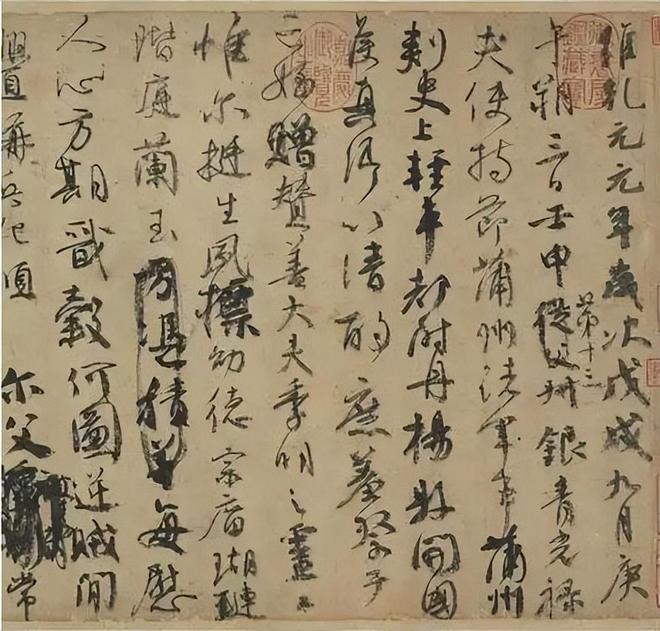 維乾元元年歲次戊戌九月庚
午朔三日壬申第十三從父叔銀青光祿
夫使持節蒲州諸軍事蒲州
刺史上輕車都尉丹楊縣開國
侯真卿以清酌庶羞祭于
亡姪贈贊善大夫季明之靈曰
惟爾挺生夙標幼德宗廟瑚璉
階庭蘭玉方憑積善每慰
人心方期戩穀何圖逆賊閒
釁稱兵犯順 爾父常